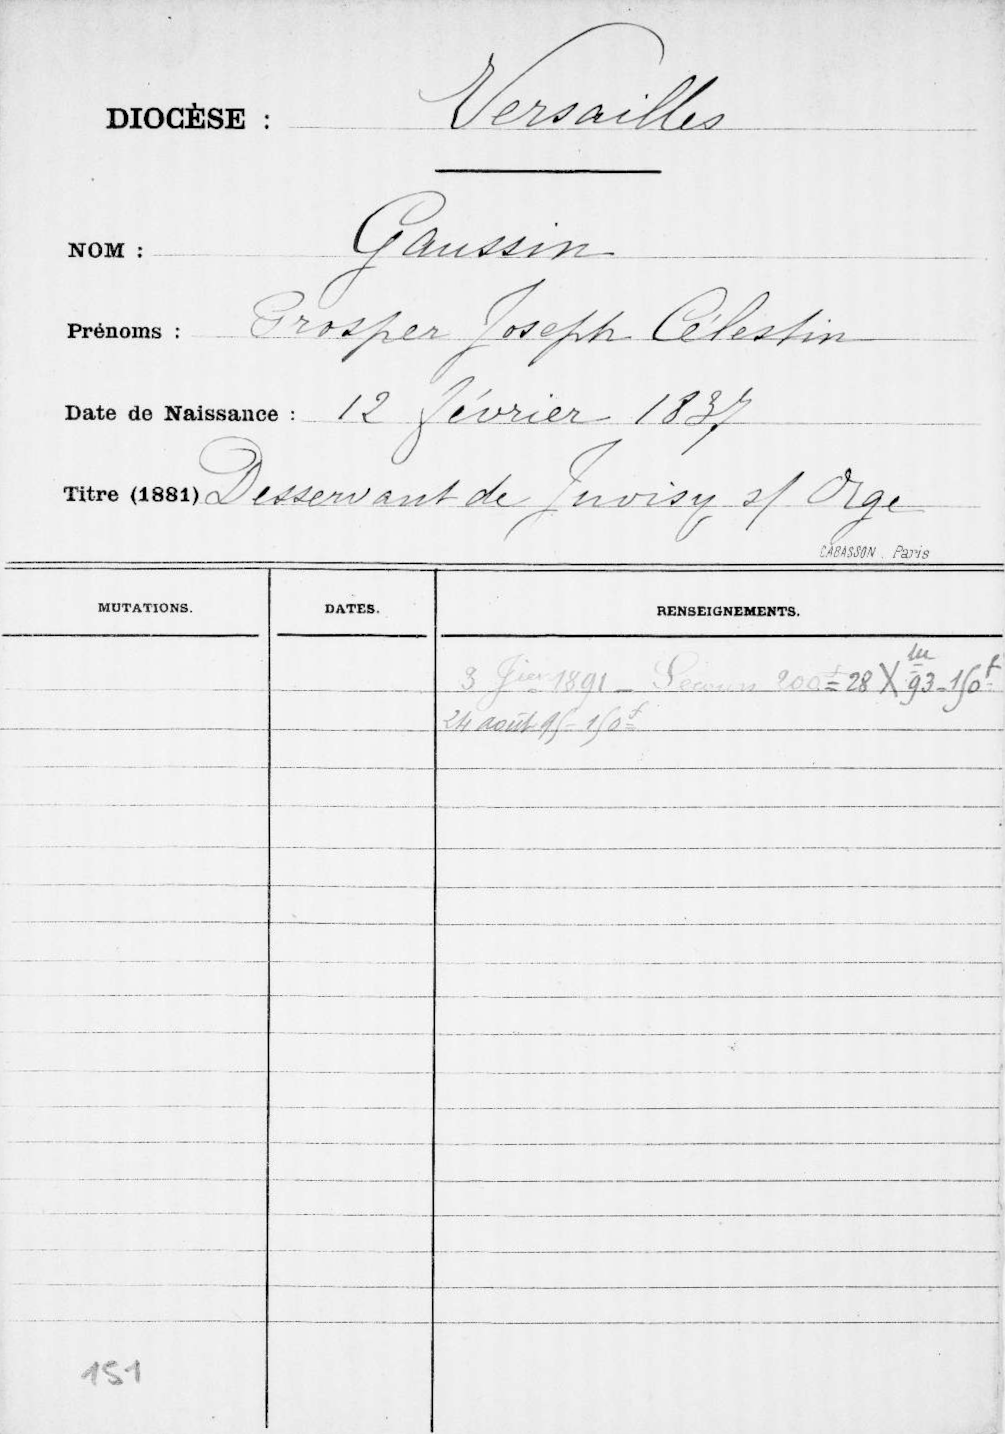 DIOCÈSE : Versailles
NOM : Gaussin
Prénoms : Prosper Joseph Célestin
Date de Naissance : 12 février 1837
Titre (1881) Desservant de Juvisy s/ Orge
CABASSON . Paris
MUTATIONS. DATES. RENSEIGNEMENTS.
3 Jier 1891 - Secours 200f = 28 Xbre 93 - 150f
24 août 95 - 150f
151